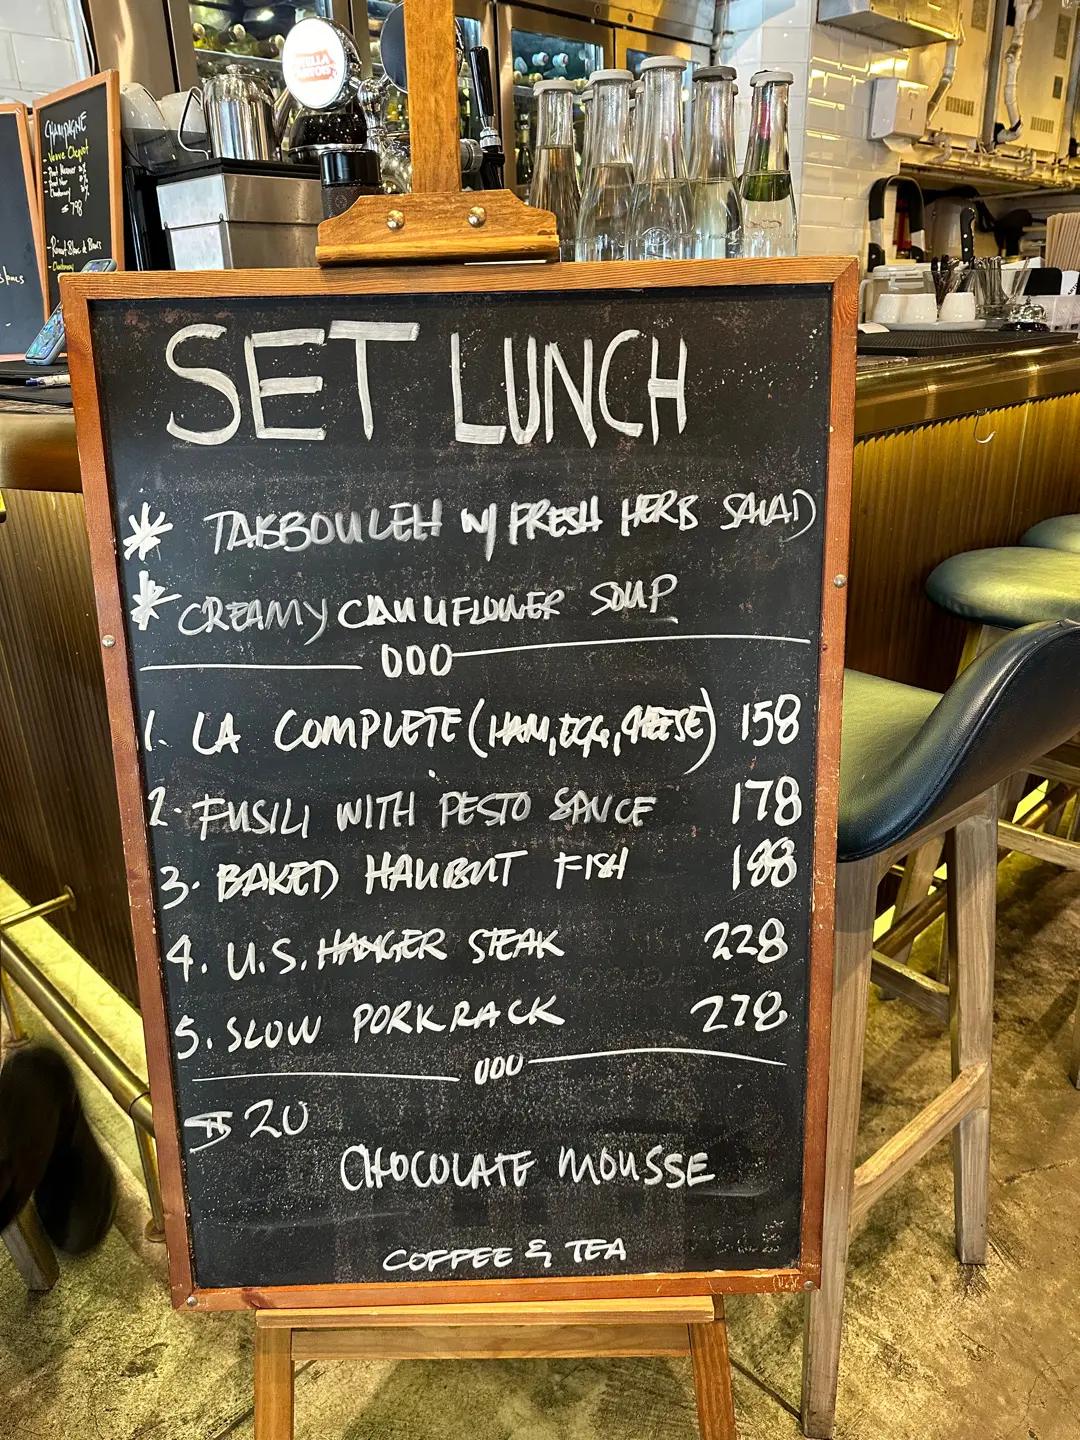 SET LUNCH
* TABBOULEH W/ FRESH HERB SALAD
* CREAMY CAULIFLOWER SOUP
000
1. LA COMPLETE (HAM, EGG, CHEESE) 158
2. FUSILI WITH PESTO SAUCE 178
3. BAKED HALIBUT FISH 198
4. U.S. HANGER STEAK 228
5. SLOW PORK RACK 278
000
$20
CHOCOLATE MOUSSE
COFFEE & TEA
CHAMPAGNE
$ 798
STELLA
ARTOIS